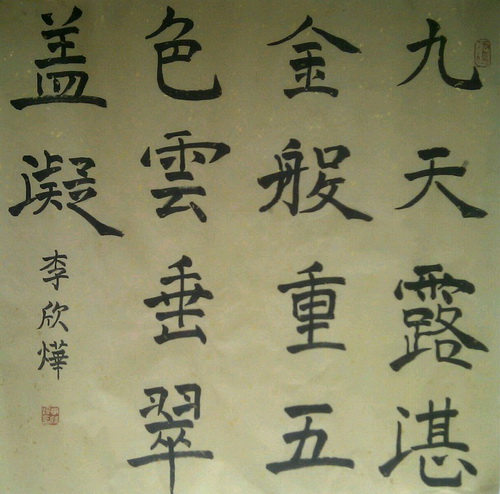 九天露湛
金般重五
色雲垂翠
盖凝
李欣燁